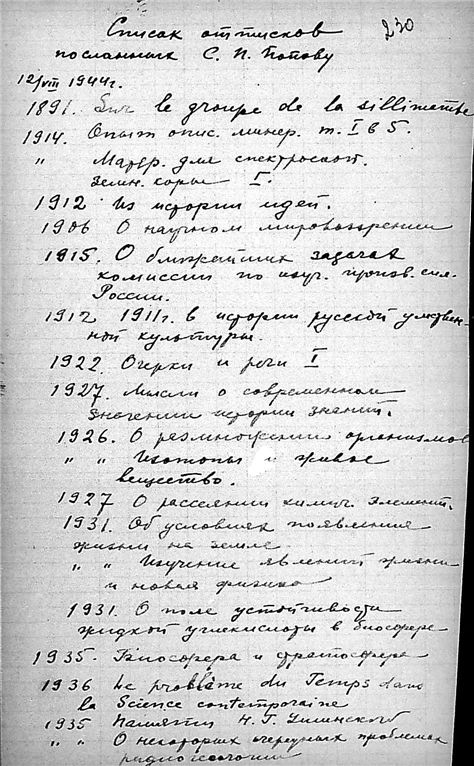 230
Список оттисков
посланных С. П. Попову
12/VIII 1944г.
1891. Sur le groupe de la sillimanite
1914. Опыт опис. минер. т. I в 5.
" Матер. для спектроскоп.
земн. коры I.
1912 Из истории идей.
1906 О научном мировоззрении
1915. О ближайших задачах
комиссии по изуч. произв. сил.
России.
1912 1911г. в истории русской умствен-
ной культуры.
1922. Очерки и речи I
1927. Мысли о современном
значении истории знаний.
1926. О размножении организмов
" " Изотопы и живое
вещество.
1927 О рассеянии химич. элемент.
1931. Об условиях появления
жизни на земле.
" " Изучение явлений жизни
и новая физика
1931. О поле устойчивости
жидкой углекислоты в биосфере
1935. Биосфера и стратосфера
1936 Le problème du Temps dans
la Science contemporaine
1935 Памяти Н. Г.
" " О некоторых очередных проблемах
радиогеологии